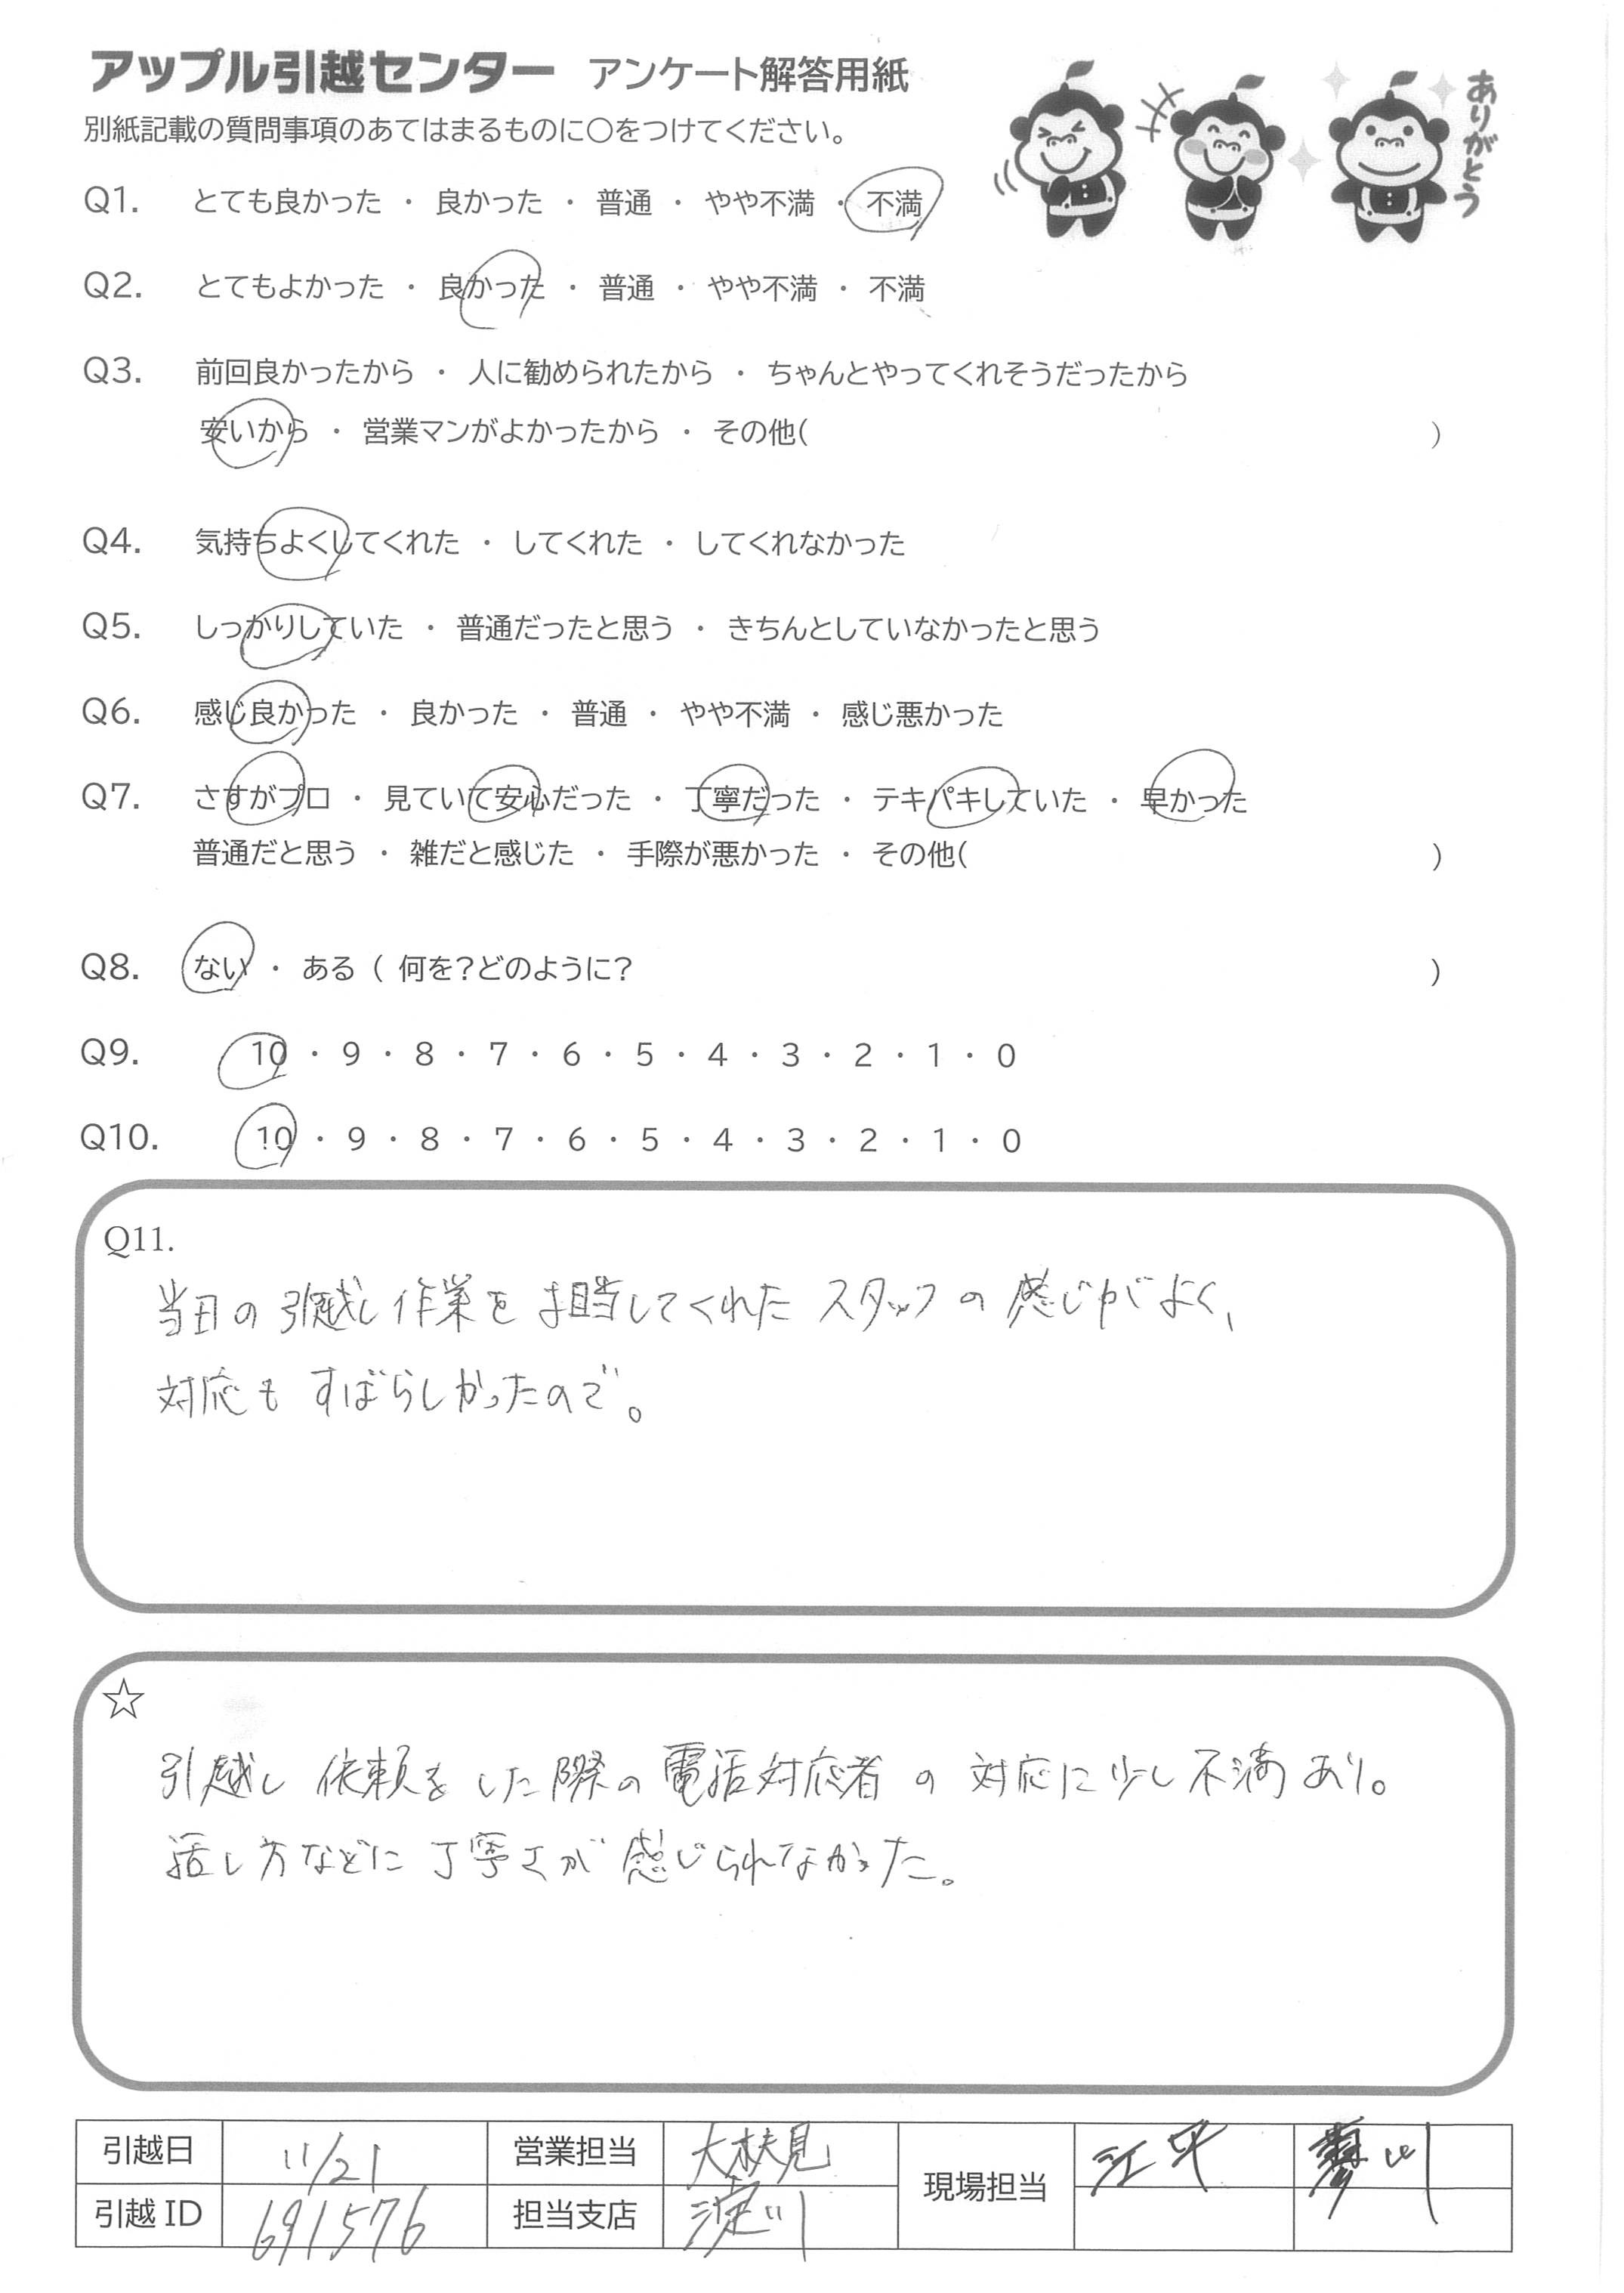 アップル引越センター アンケート解答用紙
別紙記載の質問事項のあてはまるものに○をつけてください。
ありがとう
Q1. とても良かった ・ 良かった ・ 普通 ・ やや不満 ・ 不満
Q2. とてもよかった ・ 良かった ・ 普通 ・ やや不満 ・ 不満
Q3. 前回良かったから ・ 人に勧められたから ・ ちゃんとやってくれそうだったから
安いから ・ 営業マンがよかったから ・ その他( )
Q4. 気持ちよくしてくれた ・ してくれた ・ してくれなかった
Q5. しっかりしていた ・ 普通だったと思う ・ きちんとしていなかったと思う
Q6. 感じ良かった ・ 良かった ・ 普通 ・ やや不満 ・ 感じ悪かった
Q7. さすがプロ ・ 見ていて安心だった ・ 丁寧だった ・ テキパキしていた ・ 早かった
普通だと思う ・ 雑だと感じた ・ 手際が悪かった ・ その他( )
Q8. ない ・ ある ( 何を?どのように? )
Q9. 10 ・ 9 ・ 8 ・ 7 ・ 6 ・ 5 ・ 4 ・ 3 ・ 2 ・ 1 ・ 0
Q10. 10 ・ 9 ・ 8 ・ 7 ・ 6 ・ 5 ・ 4 ・ 3 ・ 2 ・ 1 ・ 0
Q11.
当日の引越し作業を担当してくれたスタッフの感じがよく、
対応もすばらしかったので。
☆
引越し依頼をした際の電話対応者の対応に少し不満あり。
話し方などに丁寧さが感じられなかった。
引越日 11/21 営業担当 現場担当
引越ID 691576 担当支店 淀川